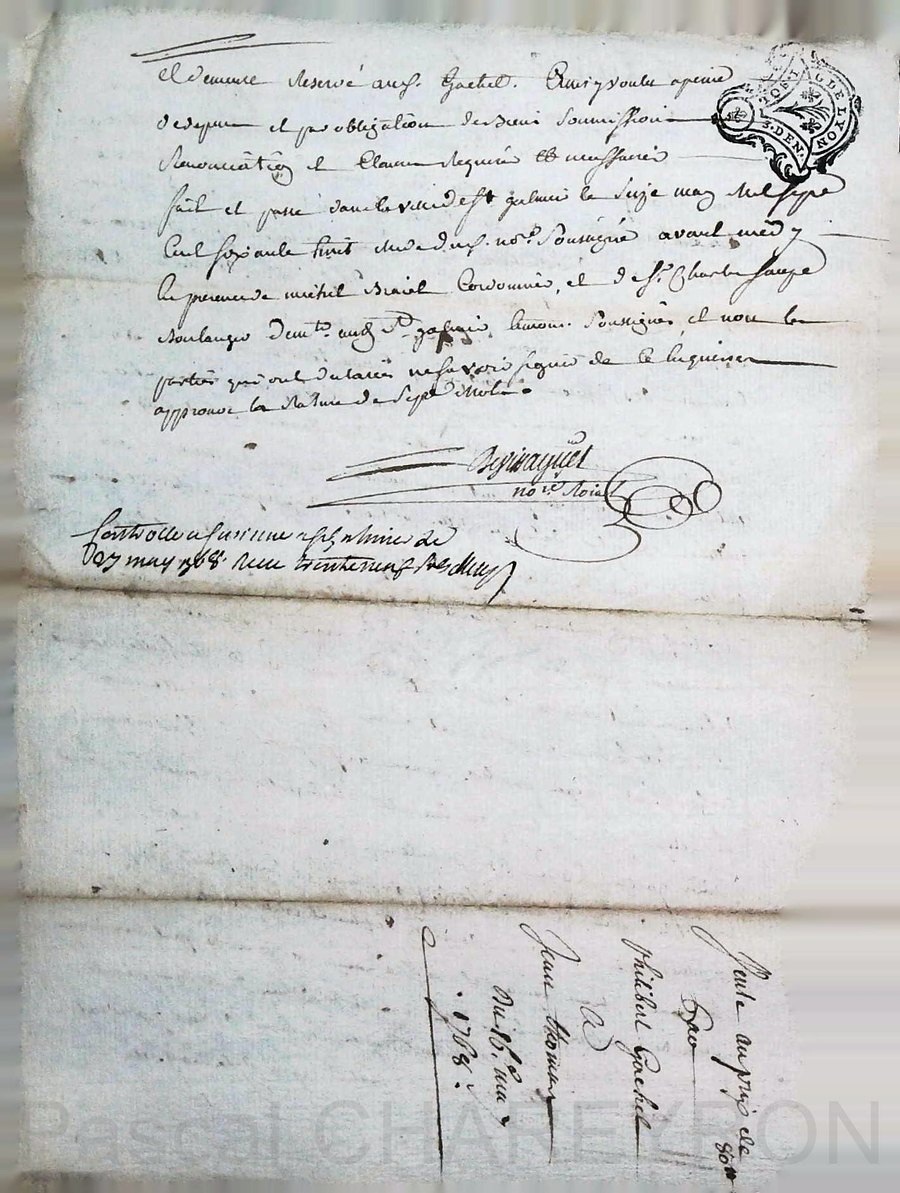 et demeure reservé aud. Gachet. Ainsy voulu a peine
de depens et par obligation de Biens Soumissions
Renonciation et Clauses Requises et necessaires
fait et passé dans la ville de St galmier le Seize may Mil Sept
Cent Soixante huit No.re Soussigné avant midy
En presence de michel Cordonnier, et de Sr. Charles
Boulanger dem.ts aud. St. galmier temoins Soussignés, et non les
parties qui ont declarés ne savoir signer de ce Enquises
approuvé la Rature de Sept Mots.
no.re Roial
Controllé a
27 may 1768. Receu trente neuf sols
G. DE LION
3. DEN
Vente au prix de
80
Par
Philibert Gachet
A
Jean thomas
Du 16.e may
1768.
Pascal CHAREYRON